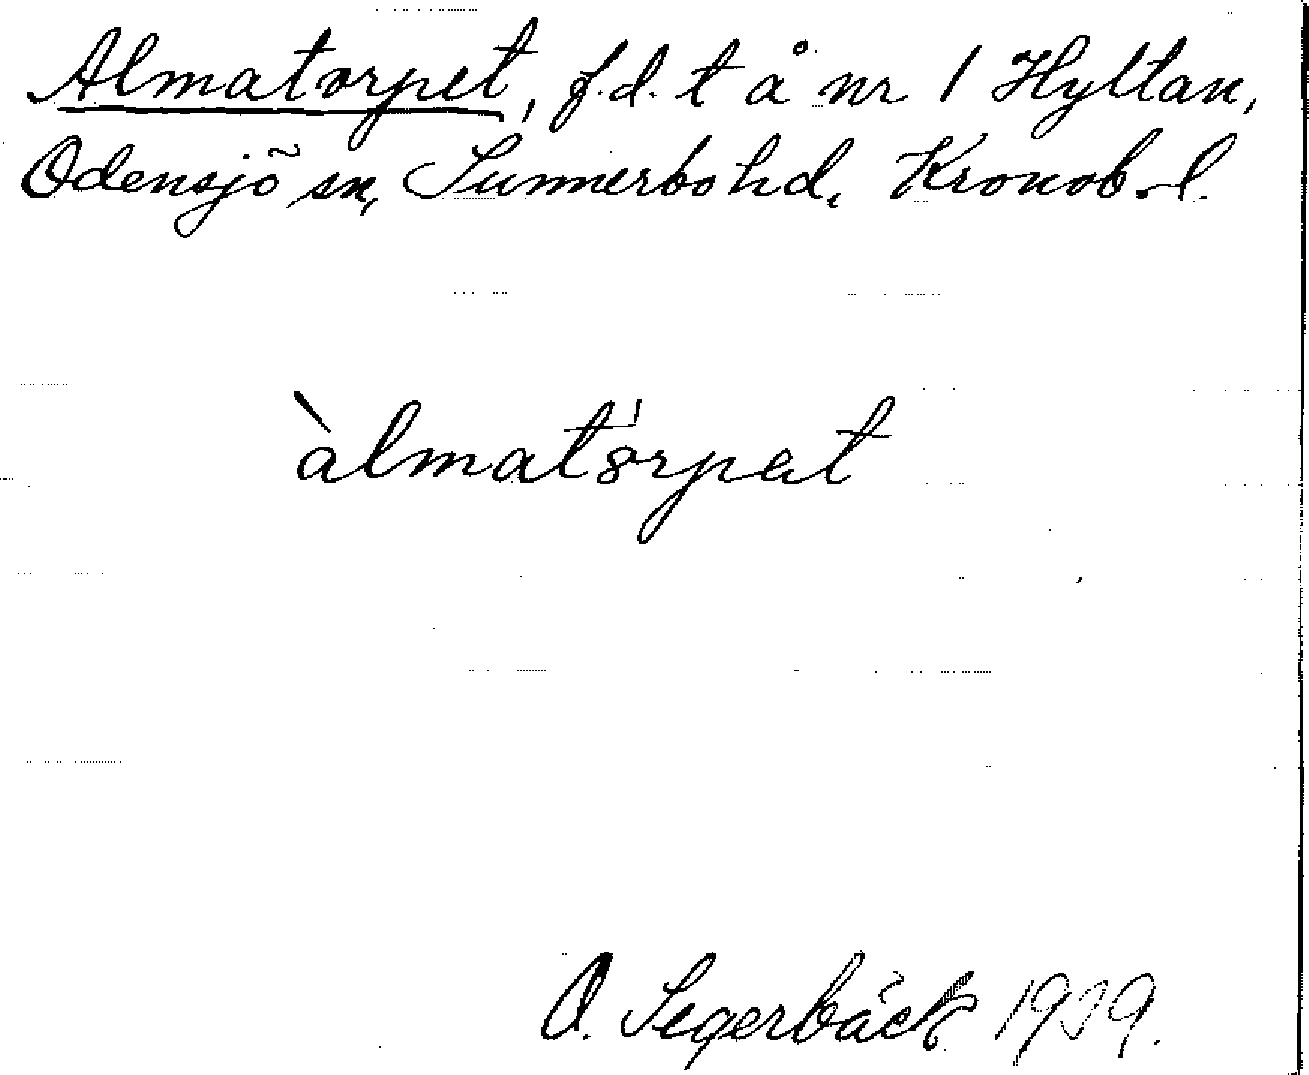 Almatorpet, f.d. t å nr 1 Hyltan,
Odensjö sn, Sunnerbo hd, Kronob. l.
àlmatórpet
O. Segerbäck 1939.